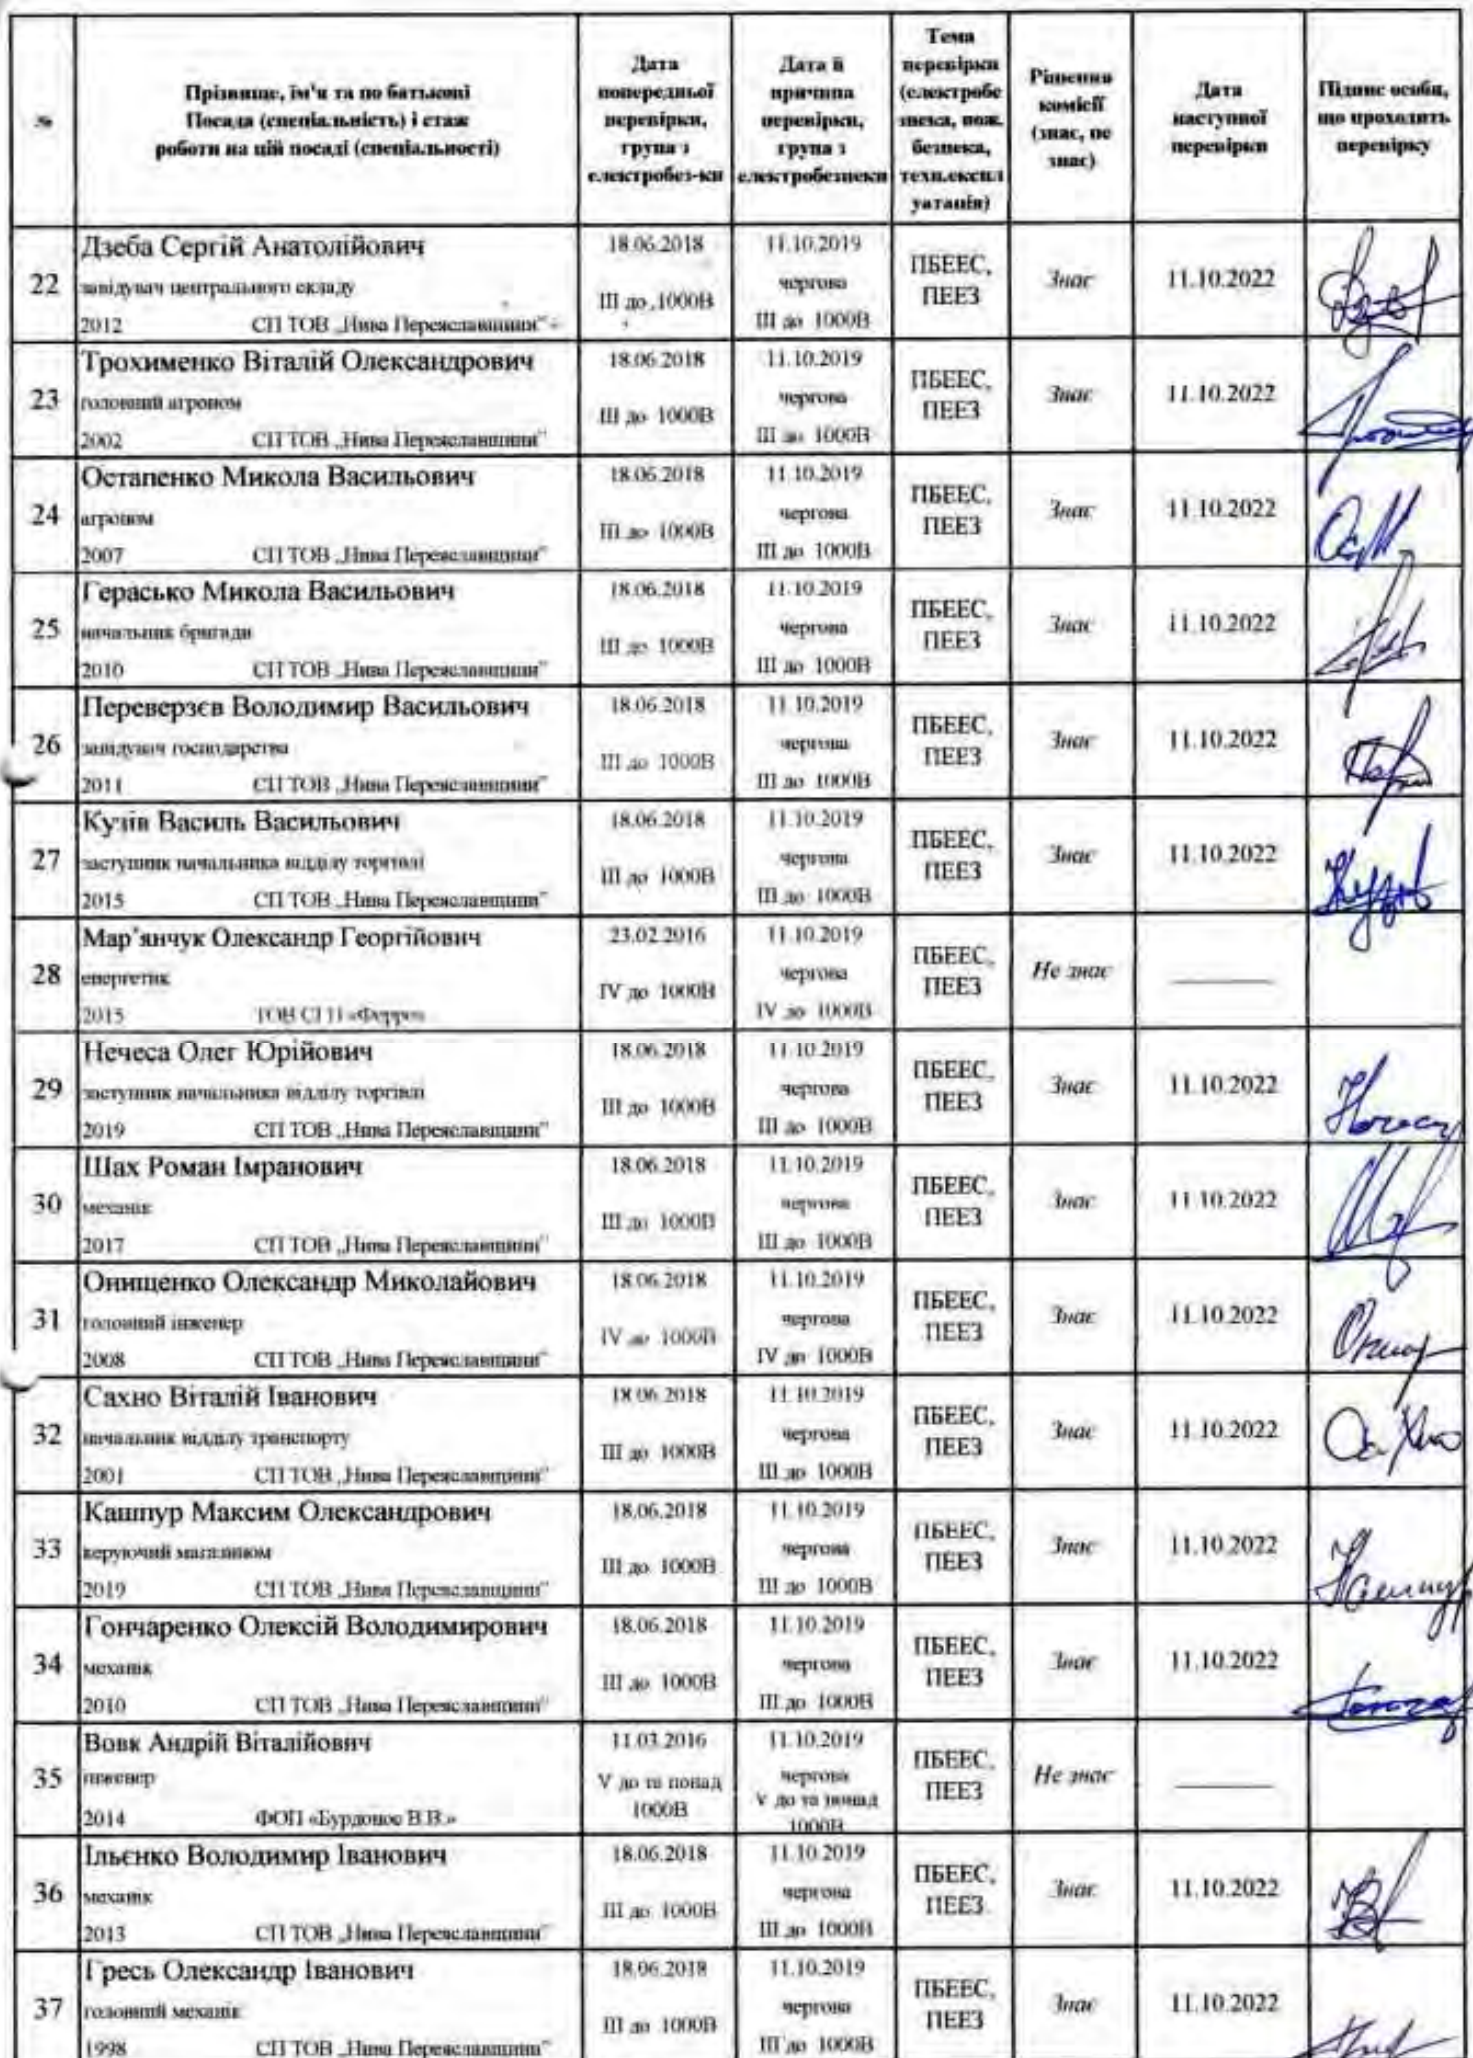 №
Прізвище, ім'я та по батькові
Посада (спеціальність) і стаж
роботи на цій посаді (спеціальності)
Дата
попередньої
перевірки,
група з
електробез-ки
Дата й
причина
перевірки,
група з
електробезпеки
Тема
перевірки
(електробе
зпека, пож.
безпека,
техн.експл
уатація)
Рішення
комісії
(знає, не
знає)
Дата
наступної
перевірки
Підпис особи,
що проходить
перевірку
22
Дзеба Сергій Анатолійович
завідувач центрального складу
2012 СП ТОВ „Нива Переяславщини"
18.06.2018
III до 1000В
11.10.2019
чергова
III до 1000В
ПБЕЕС,
ПЕЕЗ
Знає
11.10.2022
23
Трохименко Віталій Олександрович
головний агроном
2002 СП ТОВ „Нива Переяславщини"
18.06.2018
III до 1000В
11.10.2019
чергова
III до 1000В
ПБЕЕС,
ПЕЕЗ
Знає
11.10.2022
24
Остапенко Микола Васильович
агроном
2007 СП ТОВ „Нива Переяславщини"
18.06.2018
III до 1000В
11.10.2019
чергова
III до 1000В
ПБЕЕС,
ПЕЕЗ
Знає
11.10.2022
25
Герасько Микола Васильович
начальник бригади
2010 СП ТОВ „Нива Переяславщини"
18.06.2018
III до 1000В
11.10.2019
чергова
III до 1000В
ПБЕЕС,
ПЕЕЗ
Знає
11.10.2022
26
Переверзєв Володимир Васильович
завідувач господарства
2011 СП ТОВ „Нива Переяславщини"
18.06.2018
III до 1000В
11.10.2019
чергова
III до 1000В
ПБЕЕС,
ПЕЕЗ
Знає
11.10.2022
27
Кузів Василь Васильович
заступник начальника відділу торгівлі
2015 СП ТОВ „Нива Переяславщини"
18.06.2018
III до 1000В
11.10.2019
чергова
III до 1000В
ПБЕЕС,
ПЕЕЗ
Знає
11.10.2022
28
Мар'янчук Олександр Георгійович
енергетик
2015 ТОВ СГП «Ферро»
23.02.2016
IV до 1000В
11.10.2019
чергова
IV до 1000В
ПБЕЕС,
ПЕЕЗ
Не знає
29
Нечеса Олег Юрійович
заступник начальника відділу торгівлі
2019 СП ТОВ „Нива Переяславщини"
18.06.2018
III до 1000В
11.10.2019
чергова
III до 1000В
ПБЕЕС,
ПЕЕЗ
Знає
11.10.2022
30
Шах Роман Імранович
механік
2017 СП ТОВ „Нива Переяславщини"
18.06.2018
III до 1000В
11.10.2019
чергова
III до 1000В
ПБЕЕС,
ПЕЕЗ
Знає
11.10.2022
31
Онищенко Олександр Миколайович
головний інженер
2008 СП ТОВ „Нива Переяславщини"
18.06.2018
IV до 1000В
11.10.2019
чергова
IV до 1000В
ПБЕЕС,
ПЕЕЗ
Знає
11.10.2022
32
Сахно Віталій Іванович
начальник відділу транспорту
2001 СП ТОВ „Нива Переяславщини"
18.06.2018
III до 1000В
11.10.2019
чергова
III до 1000В
ПБЕЕС,
ПЕЕЗ
Знає
11.10.2022
33
Кашпур Максим Олександрович
керуючий магазином
2019 СП ТОВ „Нива Переяславщини"
18.06.2018
III до 1000В
11.10.2019
чергова
III до 1000В
ПБЕЕС,
ПЕЕЗ
Знає
11.10.2022
34
Гончаренко Олексій Володимирович
механік
2010 СП ТОВ „Нива Переяславщини"
18.06.2018
III до 1000В
11.10.2019
чергова
III до 1000В
ПБЕЕС,
ПЕЕЗ
Знає
11.10.2022
35
Вовк Андрій Віталійович
інженер
2014 ФОП «Бурдонос В.В.»
11.03.2016
V до та понад
1000В
11.10.2019
чергова
V до та понад
1000В
ПБЕЕС,
ПЕЕЗ
Не знає
36
Ільєнко Володимир Іванович
механік
2013 СП ТОВ „Нива Переяславщини"
18.06.2018
III до 1000В
11.10.2019
чергова
III до 1000В
ПБЕЕС,
ПЕЕЗ
Знає
11.10.2022
37
Гресь Олександр Іванович
головний механік
1998 СП ТОВ „Нива Переяславщини"
18.06.2018
III до 1000В
11.10.2019
чергова
III до 1000В
ПБЕЕС,
ПЕЕЗ
Знає
11.10.2022